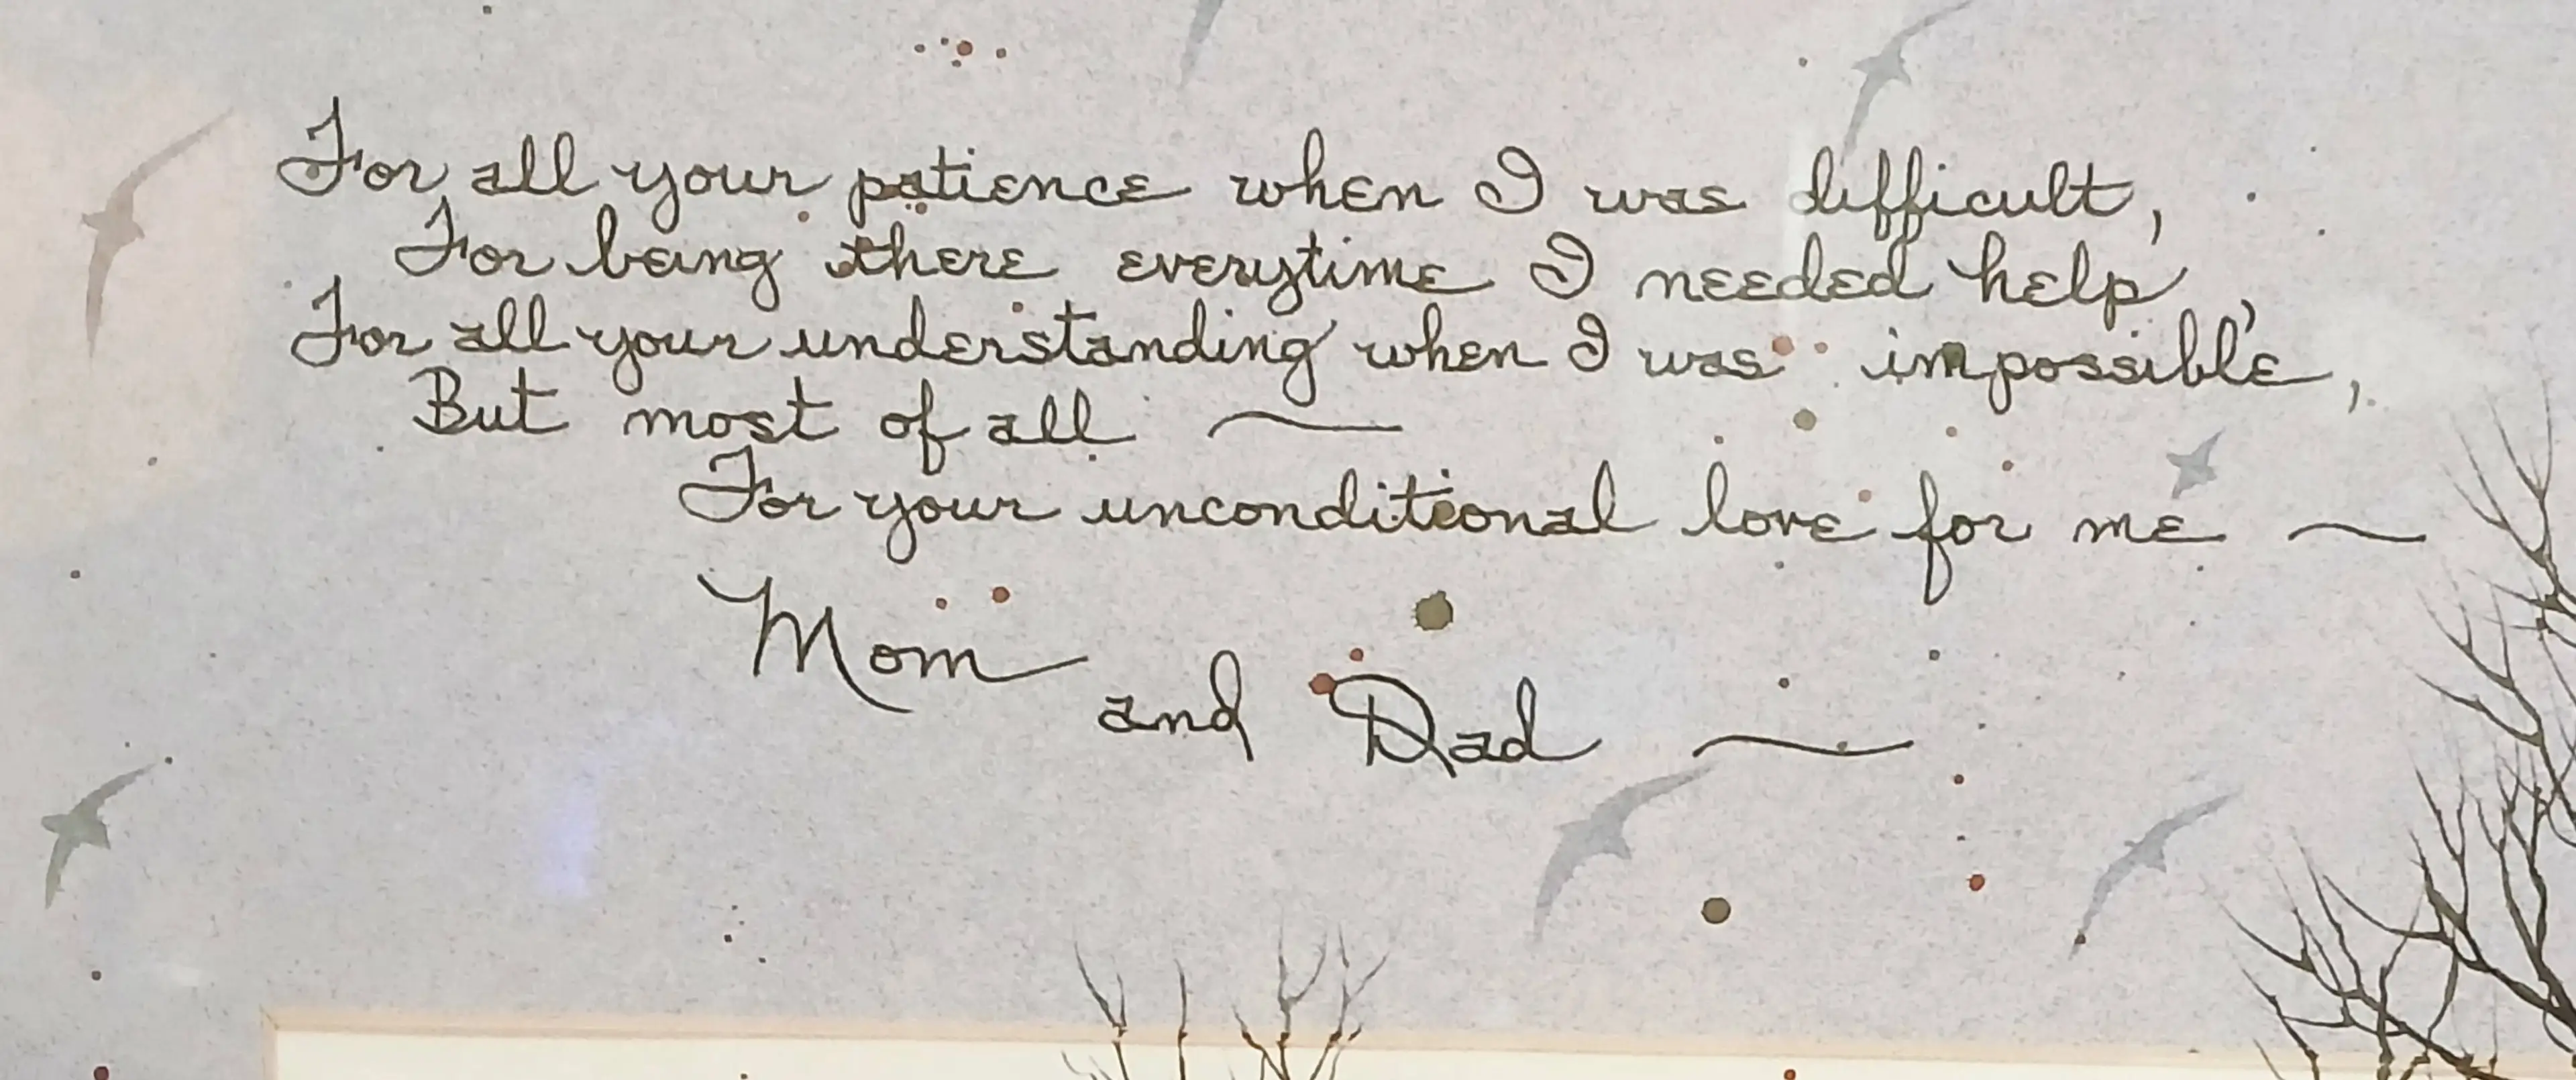 For all your patience when I was difficult,
For being there everytime I needed help,
For all your understanding when I was impossible,
But most of all ~
For your unconditional love for me ~
Mom
and Dad ~